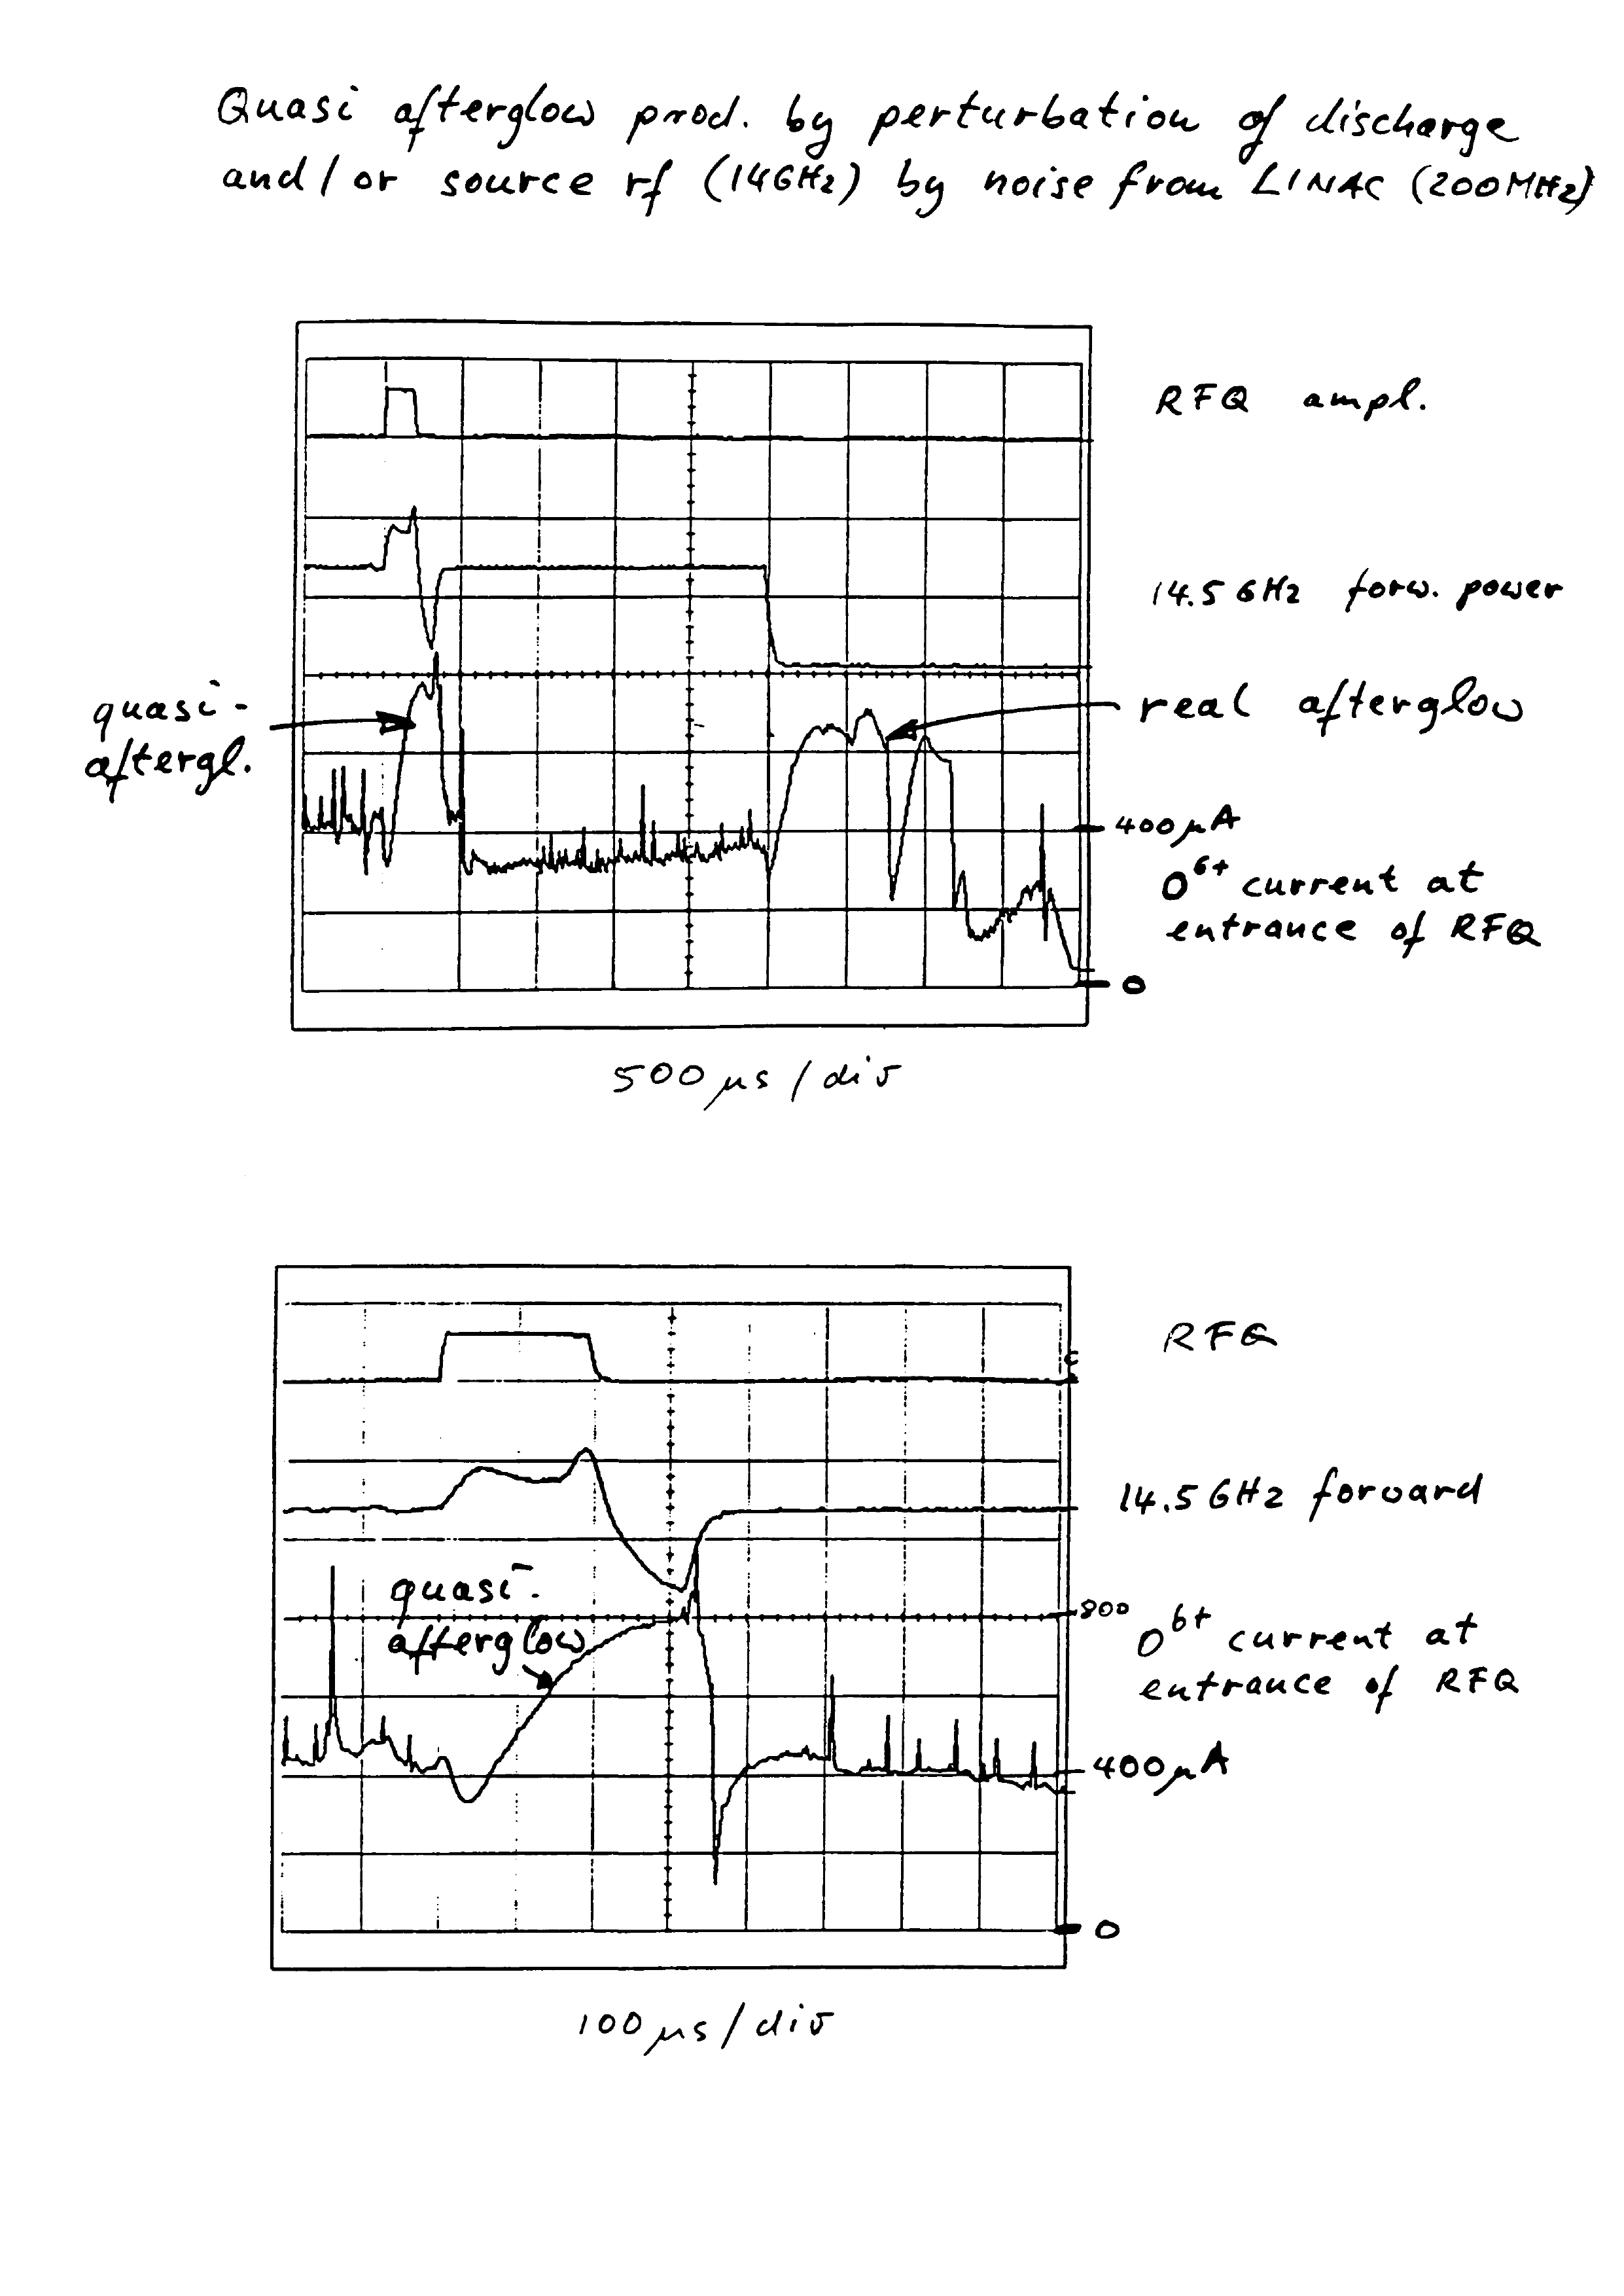 Quasi afterglow prod. by perturbation of discharge
and/or source rf (14GHz) by noise from LINAC (200MHz)
RFQ ampl.
14.5 GHz forw. power
quasi-
aftergl.
real afterglow
400μA
O⁶⁺ current at
entrance of RFQ
0
500μs/div
RFQ
14.5 GHz forward
quasi-
afterglow
800
O⁶⁺ current at
entrance of RFQ
400μA
0
100μs/div